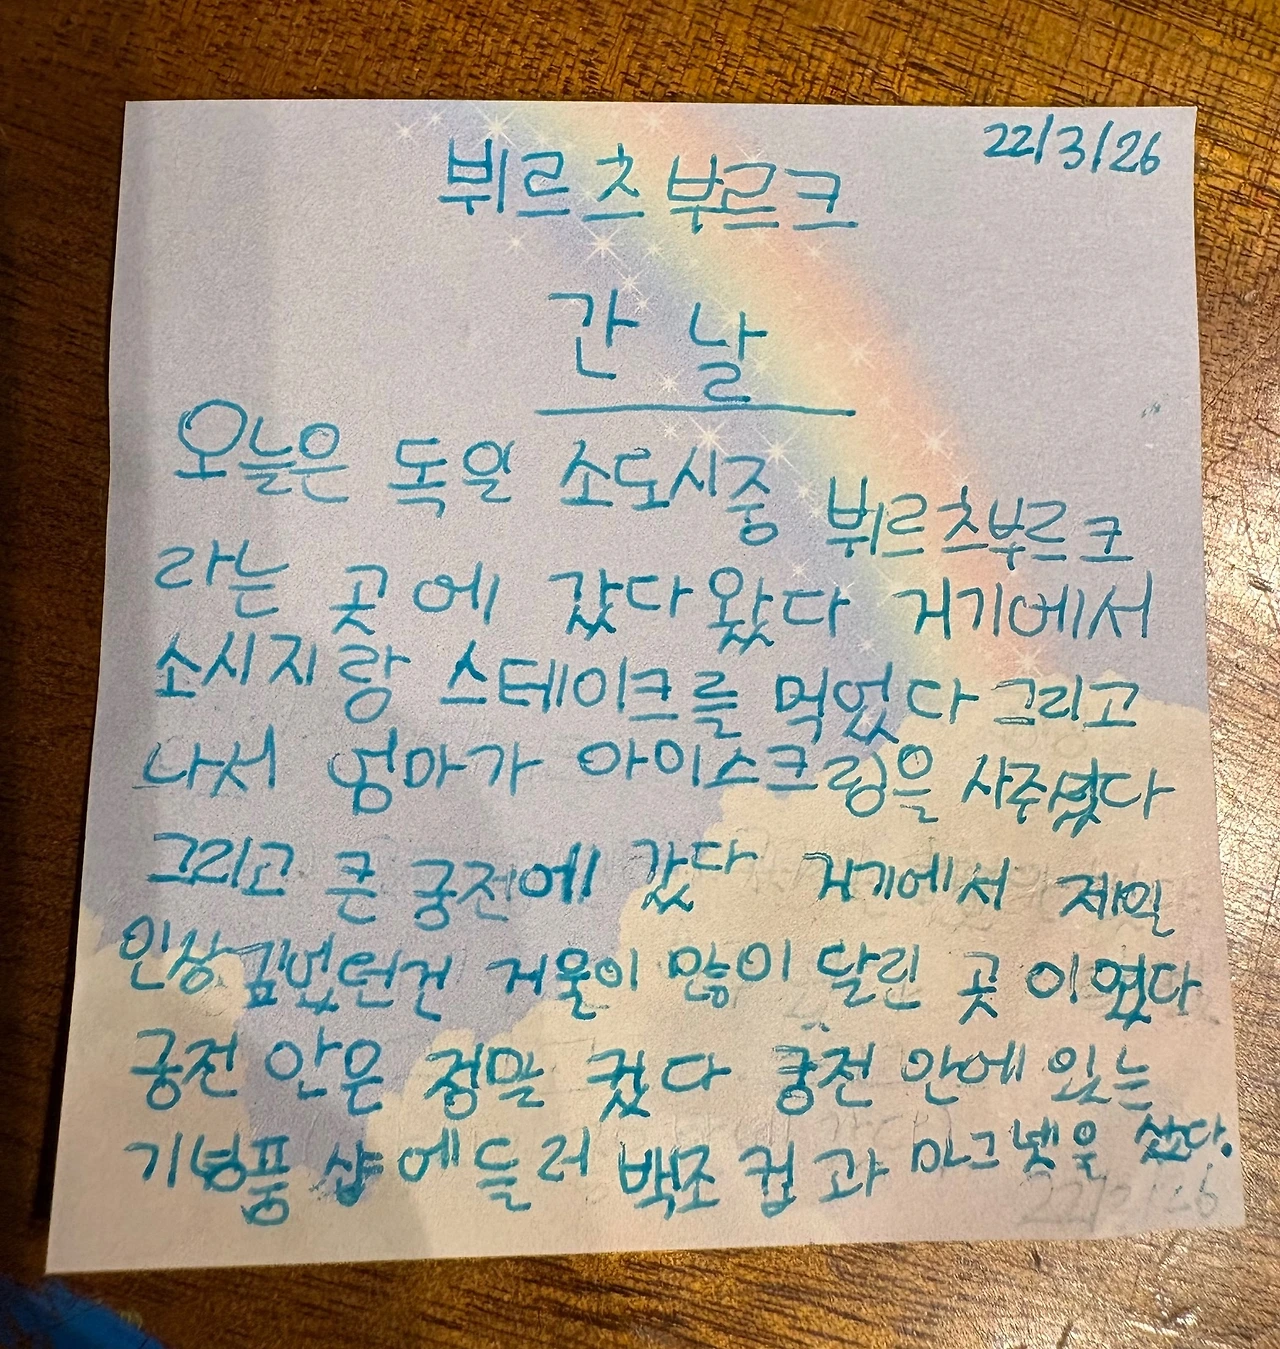 22/3/26
뷔르츠부르크
간 날
오늘은 독일 소도시중 뷔르츠부르크
라는 곳에 갔다왔다 거기에서
소시지랑 스테이크를 먹었다 그리고
나서 엄마가 아이스크림을 사주셨다
그리고 큰 궁전에 갔다 거기에서 제일
인상깊었던건 거울이 많이 달린 곳이였다
궁전 안은 정말 컸다 궁전 안에 있는
기념품 샵에 들러 백조 컵과 마그넷을 샀다.
22/3/26